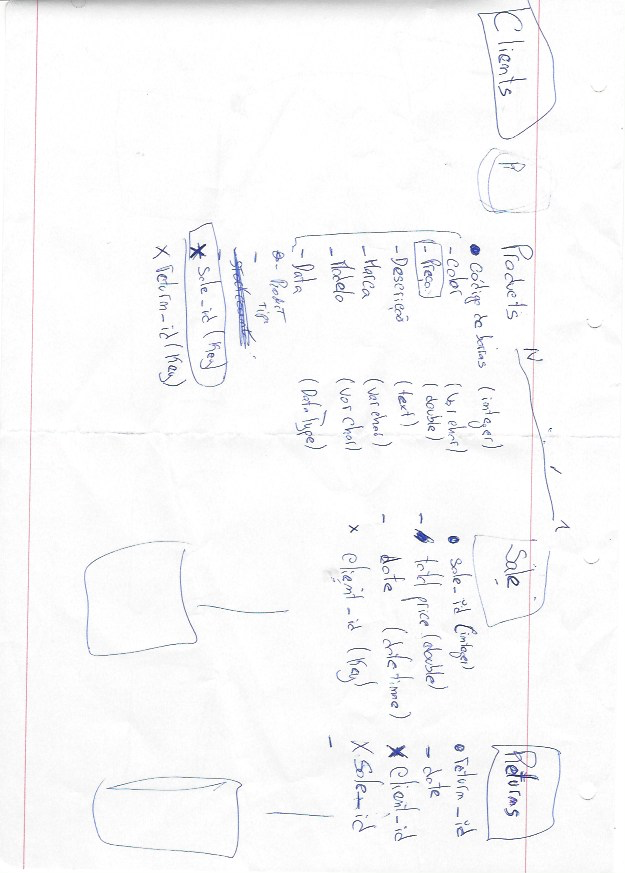 Clients.
Products
N
1
Código de barras (integer)
- Color (Varchar)
- Preço (double)
- Descrição (text)
- Marca (Varchar)
- Modelo (Varchar)
- Data (DataType)
- Product Tipe
X Sale_id (Key)
X Return_id (Key)
Sale
Sale_id (integer)
- total price (double)
- date (datetime)
X Client_id (Key)
Returns
Return_id
- date
X Client_id
X Sale_id
-